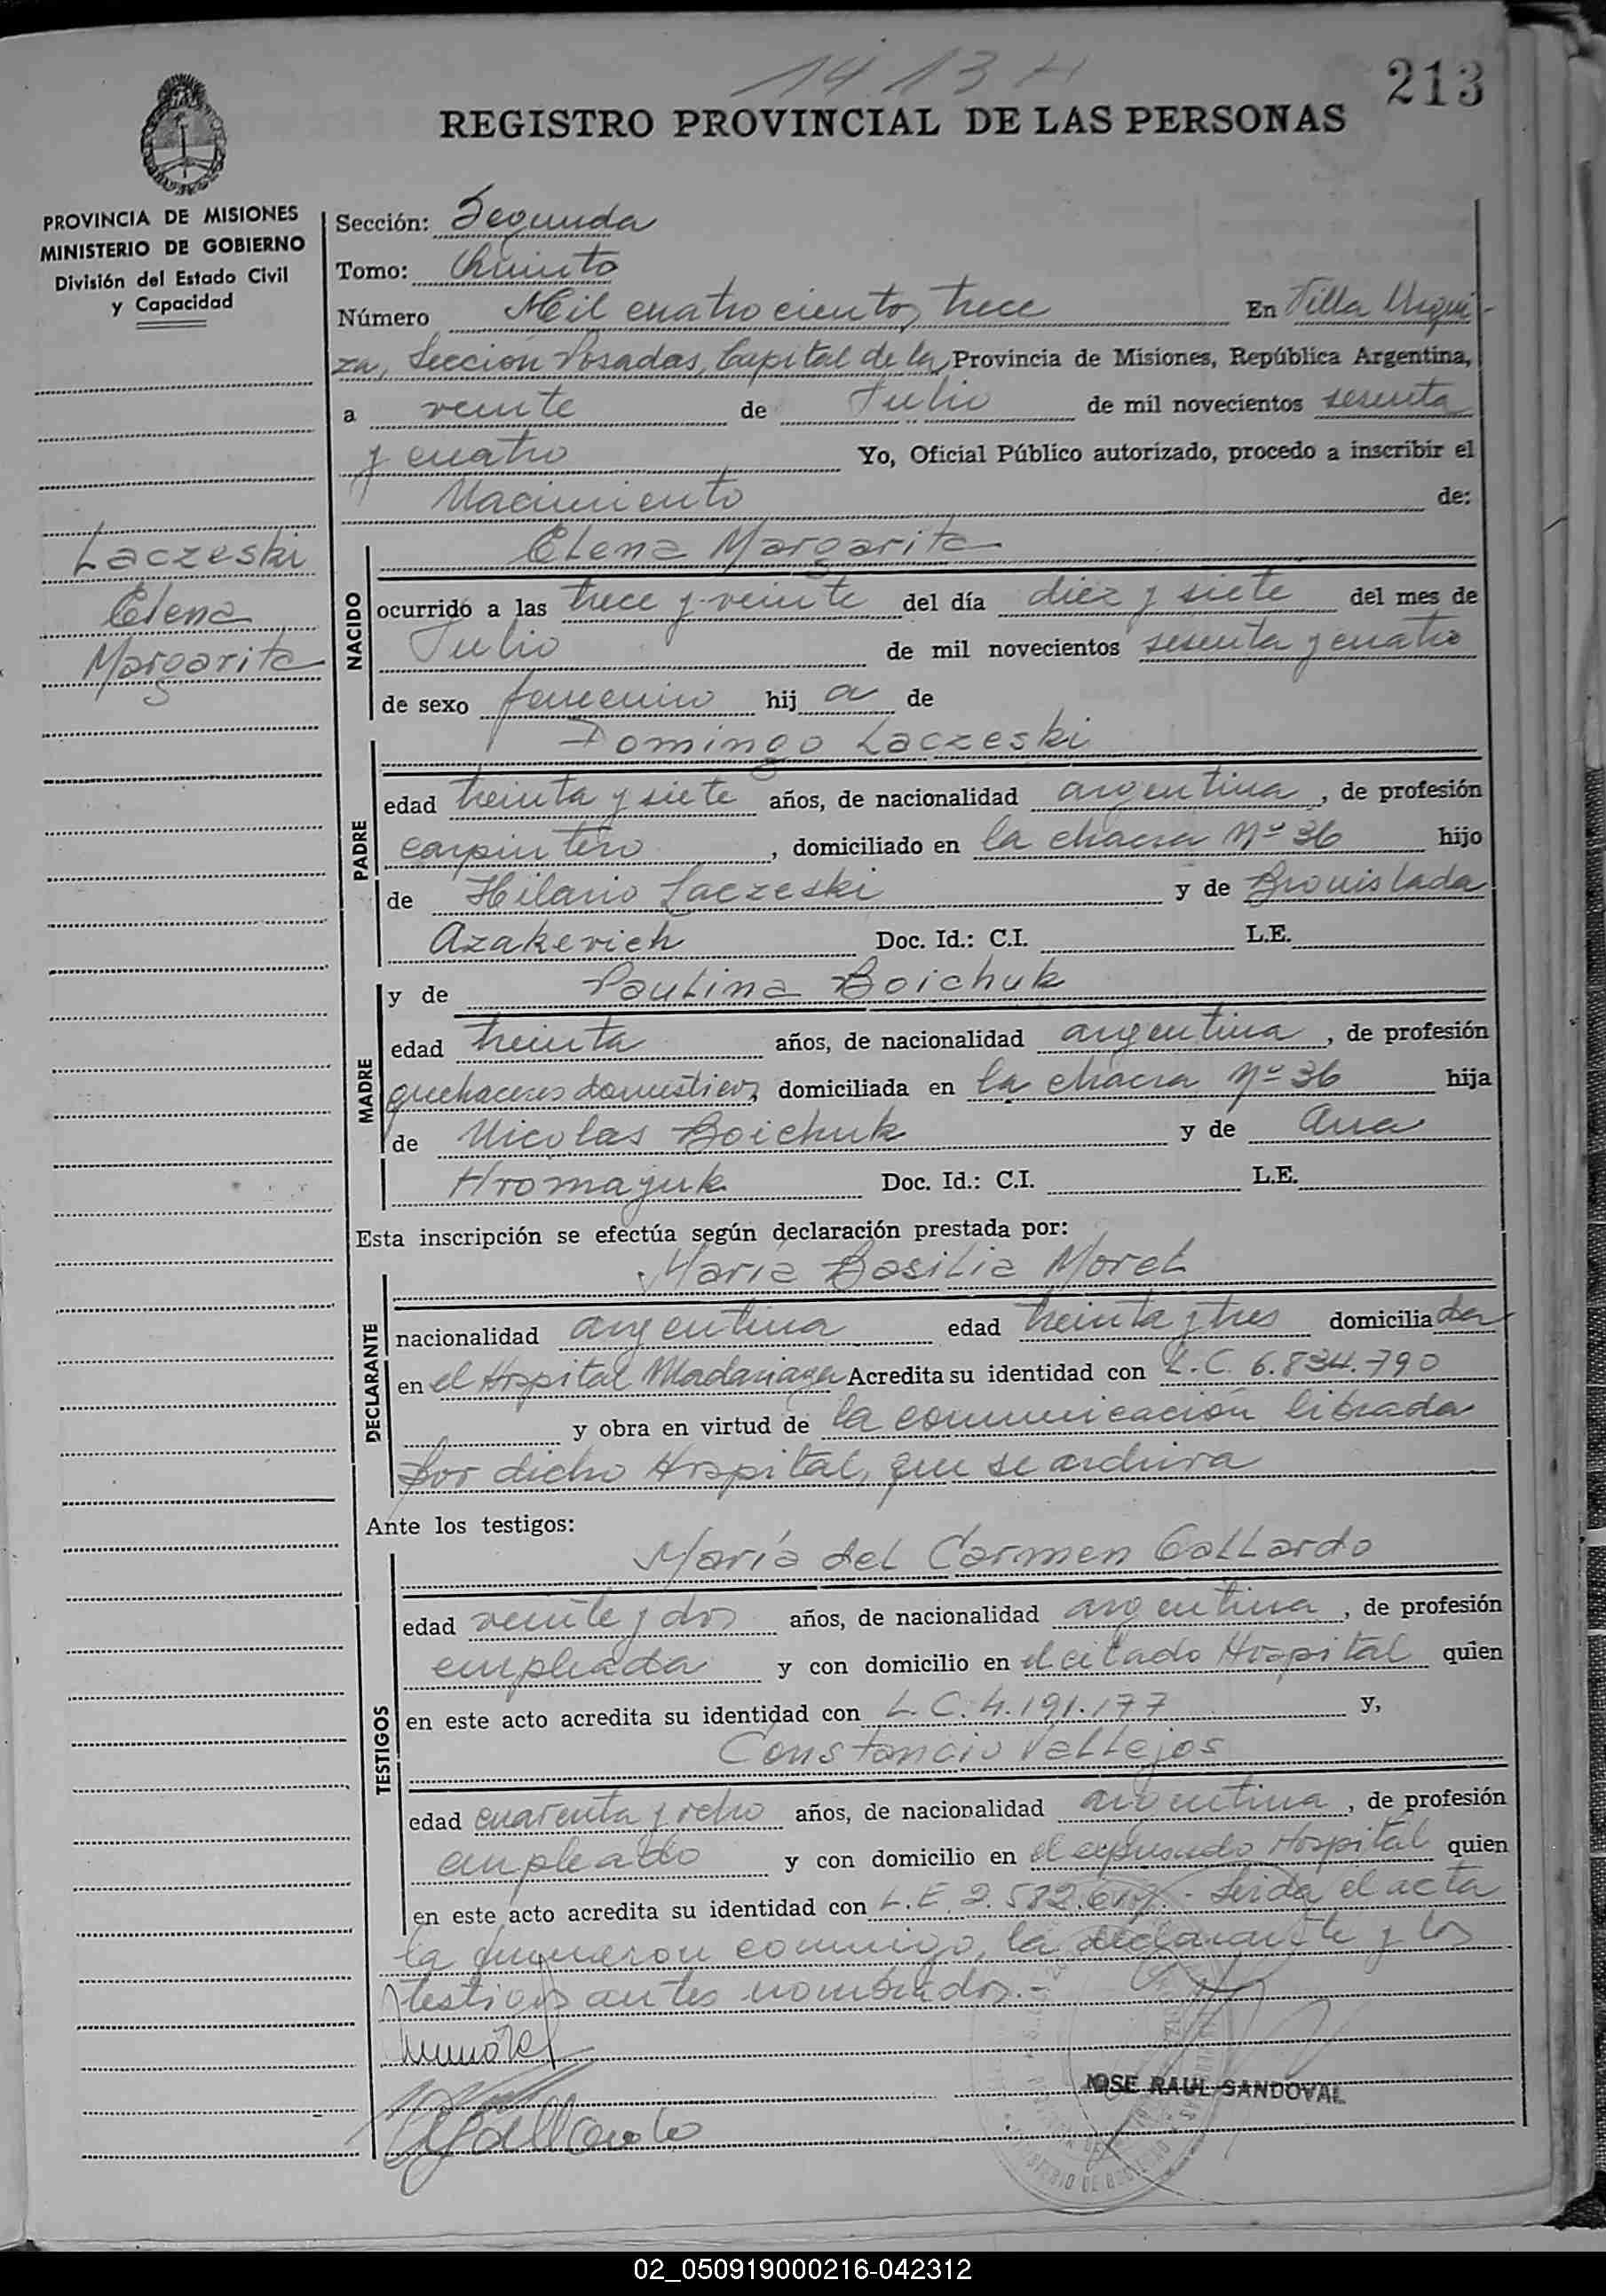 1413
213
REGISTRO PROVINCIAL DE LAS PERSONAS
PROVINCIA DE MISIONES
MINISTERIO DE GOBIERNO
División del Estado Civil
y Capacidad
Laczeski
Elena
Margarita
Sección: Segunda
Tomo: Quinto
Número Mil cuatrocientos trece En Villa Urqui-
za, Sección Posadas, Capital de la Provincia de Misiones, República Argentina,
a veinte de Julio de mil novecientos sesenta
y cuatro Yo, Oficial Público autorizado, procedo a inscribir el
Nacimiento de:
Elena Margarita
NACIDO
ocurrido a las trece y veinte del día diez y siete del mes de
Julio de mil novecientos sesenta y cuatro
de sexo femenino hij a de
Domingo Laczeski
PADRE
edad treinta y siete años, de nacionalidad argentina, de profesión
carpintero, domiciliado en la chacra Nº 36 hijo
de Hilario Laczeski y de Bronislada
Azakevich Doc. Id.: C.I. L.E.
MADRE
y de Paulina Boichuk
edad treinta años, de nacionalidad argentina, de profesión
quehaceres domésticos, domiciliada en la chacra Nº 36 hija
de Nicolas Boichuk y de Ana
Hromayuk Doc. Id.: C.I. L.E.
Esta inscripción se efectúa según declaración prestada por:
María Basilia Morel
DECLARANTE
nacionalidad argentina edad treinta y tres domiciliada
en el Hospital Madariaga Acredita su identidad con L.C. 6.834.790
y obra en virtud de la comunicación librada
por dicho Hospital, que se archiva
Ante los testigos:
María del Carmen Gallardo
TESTIGOS
edad veinte y dos años, de nacionalidad argentina, de profesión
empleada y con domicilio en el citado Hospital quien
en este acto acredita su identidad con L.C. 4.191.177 y,
Constancio Vallejos
edad cuarenta y ocho años, de nacionalidad argentina, de profesión
empleado y con domicilio en el expresado Hospital quien
en este acto acredita su identidad con L.E. 2.582. Leida el acta
la firmaron conmigo, la declarante y los
testigos antes nombrados.-
JOSE RAUL SANDOVAL
02_050919000216-042312